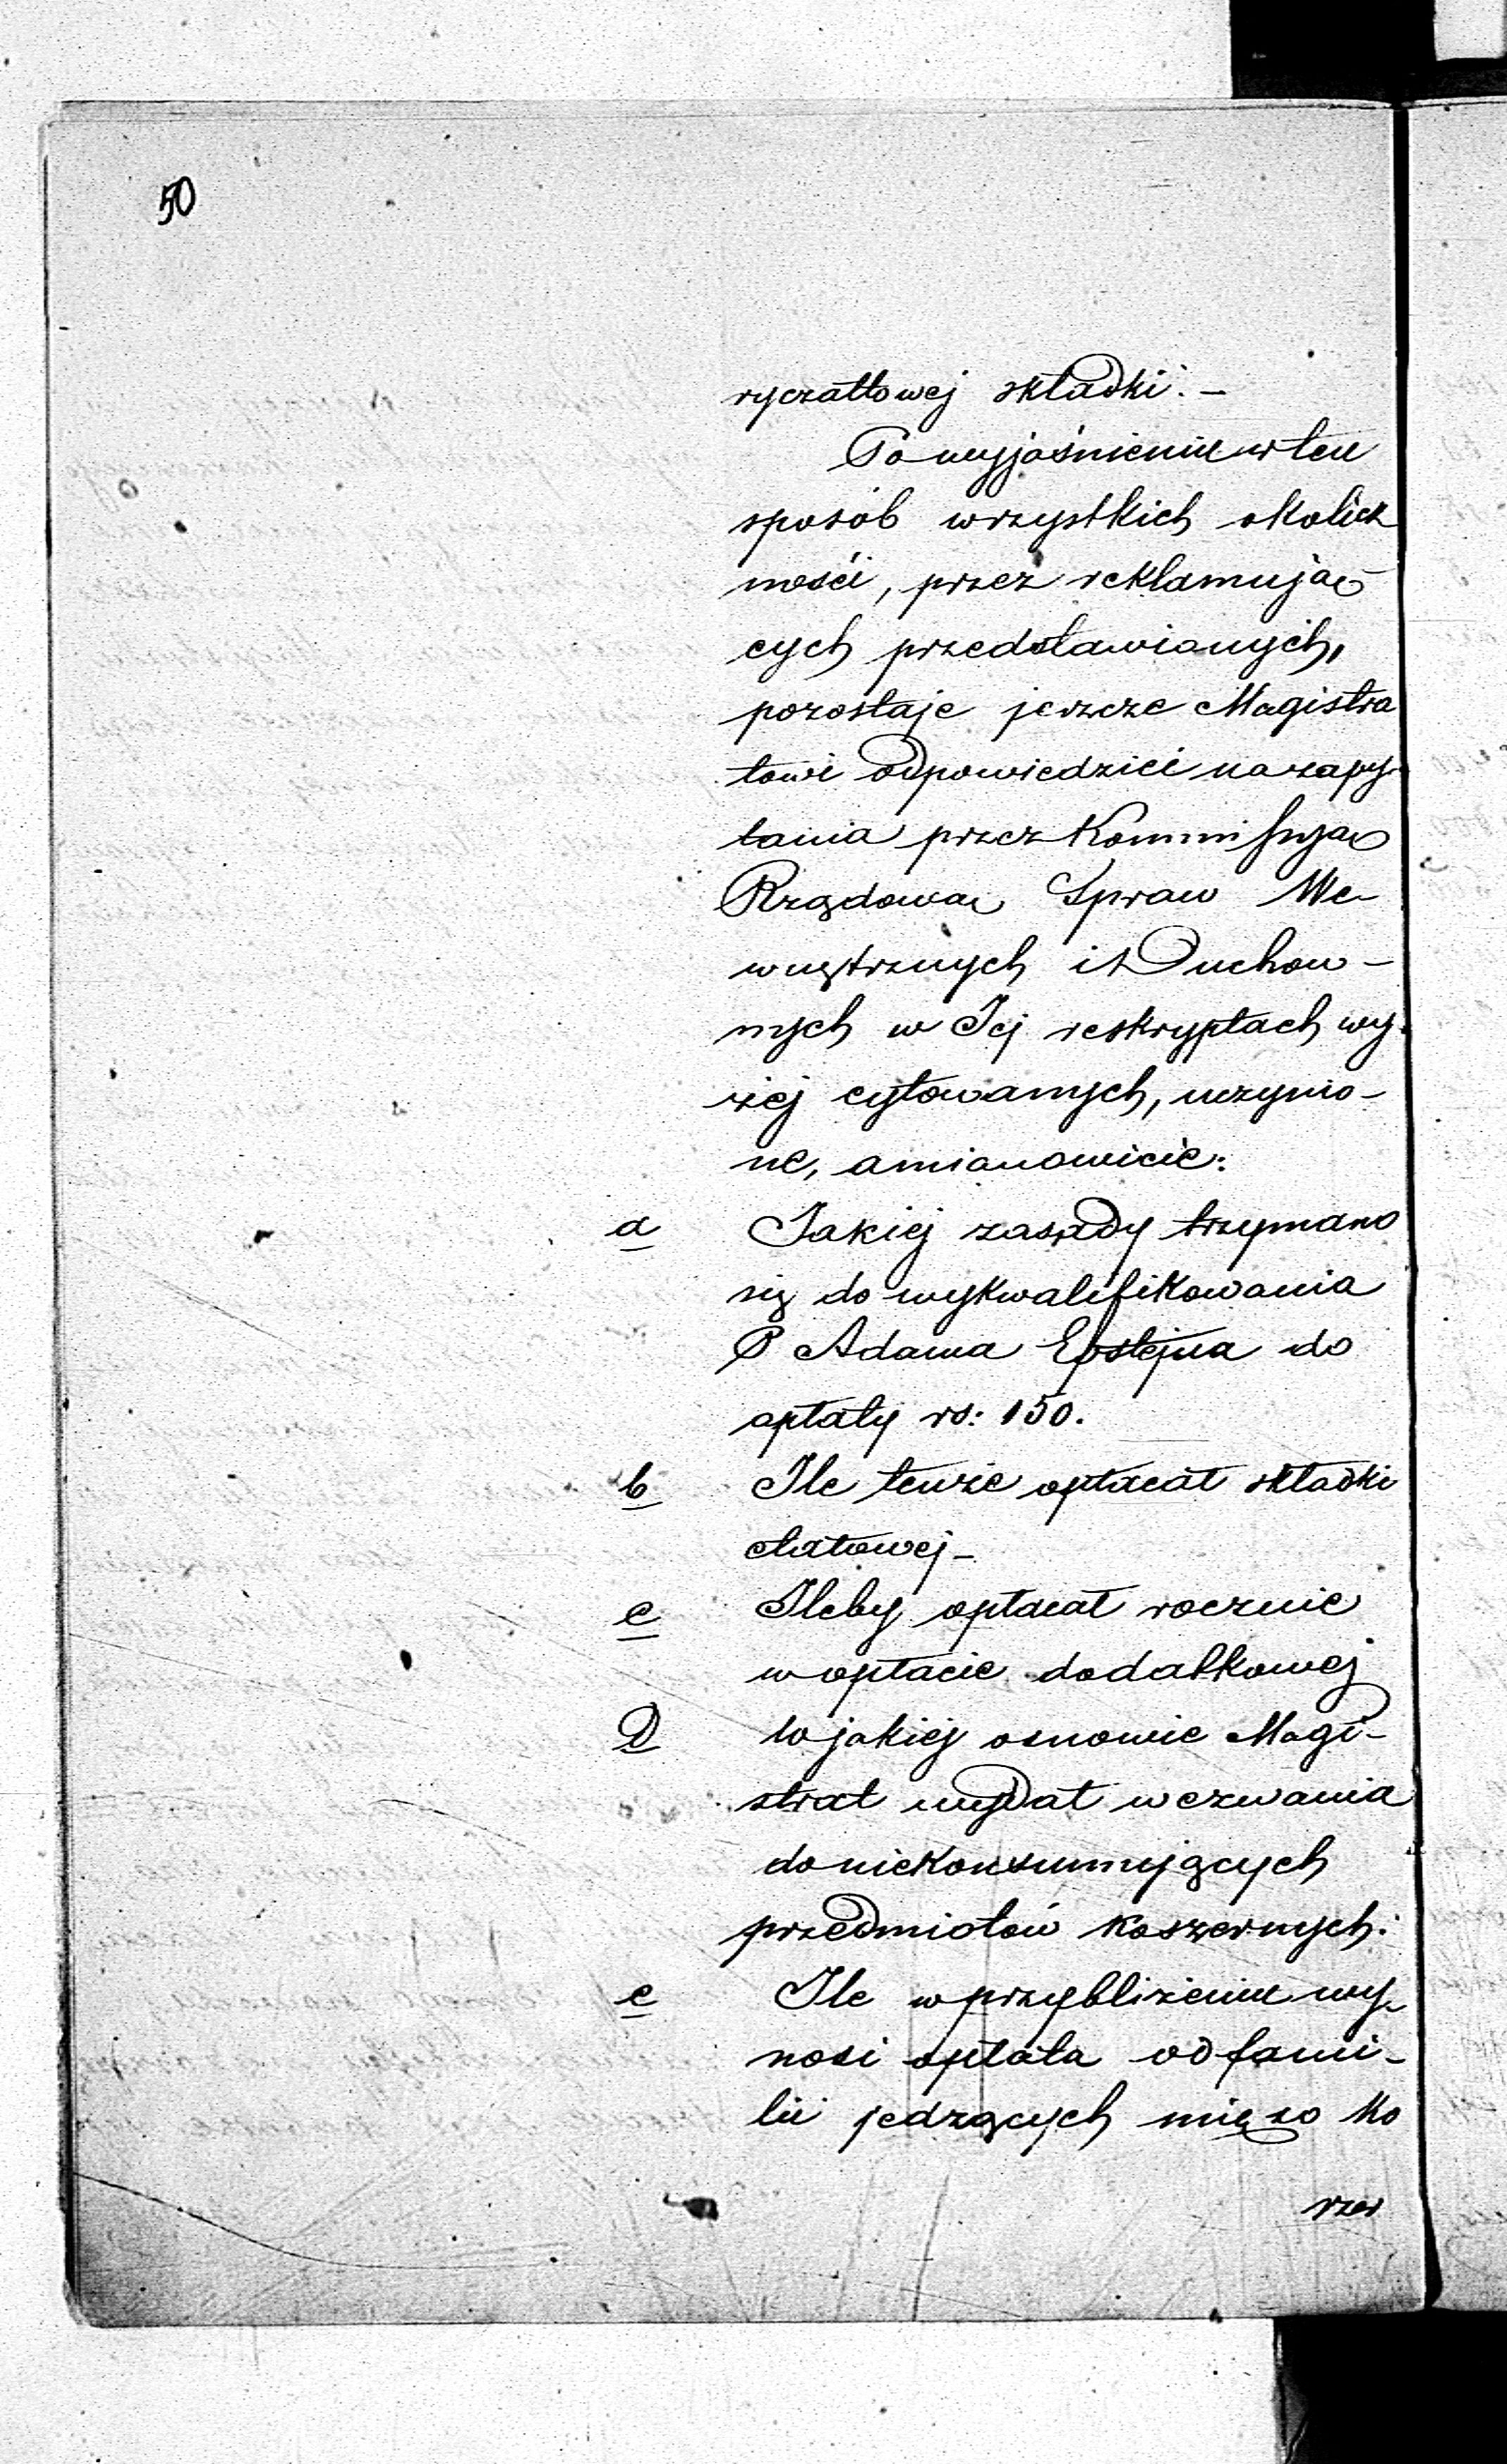 50
ryczałtowej składki. –
Po wyjaśnieniu w ten
sposób wszystkich okolicz
ności, przez reklamują
cych przedstawianych,
pozostaje jeszcze Magistra
towi odpowiedzieć na zapy-
tania przez Kommissyą
Rządową Spraw We-
wnętrznych i Duchow-
nych w Jej reskryptach wy-
żej cytowanych, uczynio-
ne, a mianowicie:
a Jakiej zasady trzymano
się do wykwalifikowania
P Adama Epstejna do
opłaty rs: 150.
b Ile tenże opłacał składki
etatowej –
c Ileby opłacał rocznie
w opłacie dodatkowej
D W jakiej osnowie Magi-
strat wydał wezwania
do niekonsumujących
przedmiotów koszernych.
e Ile w przybliżeniu wy-
nosi opłata od fami-
lii jedzących mięso ko
szer